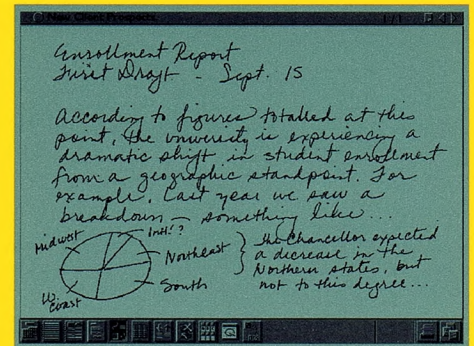 New Client Prospects
1/1
Enrollment Report
First Draft - Sept. 15
According to figures totalled at this
point, the university is experiencing a
dramatic shift in student enrollment
from a geographic standpoint. For
example, last year we saw a
breakdown — something like...
Midwest
Intl.?
Northeast
South
W. Coast
} the Chancellor expected
a decrease in the
Northern states, but
not to this degree...